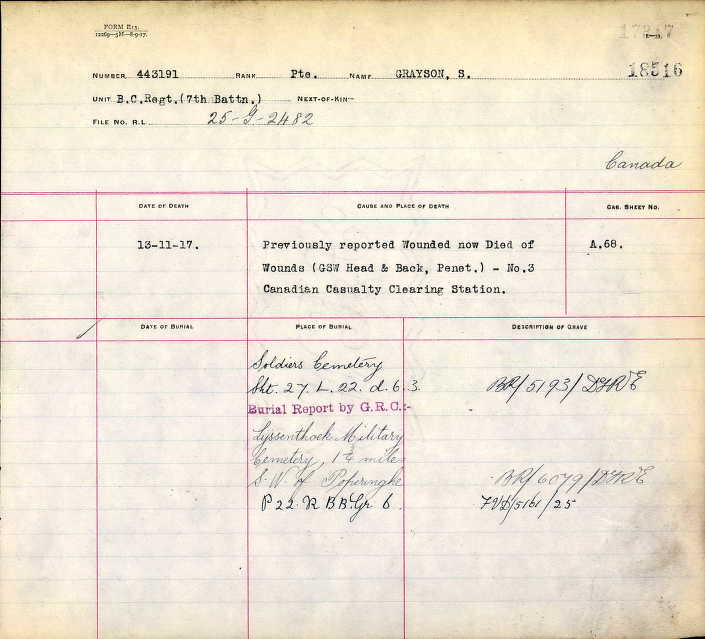 FORM R13.
12269—5M—8-9-17.
18516
NUMBER 443191 RANK Pte. NAME GRAYSON, S.
UNIT B.C.Regt.(7th Battn.) NEXT-OF-KIN—
FILE NO. R.L. 25-G-2482
Canada
DATE OF DEATH CAUSE AND PLACE OF DEATH CAS. SHEET NO.
13-11-17. Previously reported Wounded now Died of A.68.
Wounds (GSW Head & Back, Penet.) - No.3
Canadian Casualty Clearing Station.
DATE OF BURIAL PLACE OF BURIAL DESCRIPTION OF GRAVE
Soldiers Cemetery
Sht. 27. L. 22. d. 6.3. BR/5193/DGR&E
Burial Report by G.R.C.:-
Lyssenthoek Military
Cemetery, 1¾ miles
S.W. of Poperinghe BR/6079/DGR&E
P 22. R BB. Gr 6. /5161/25